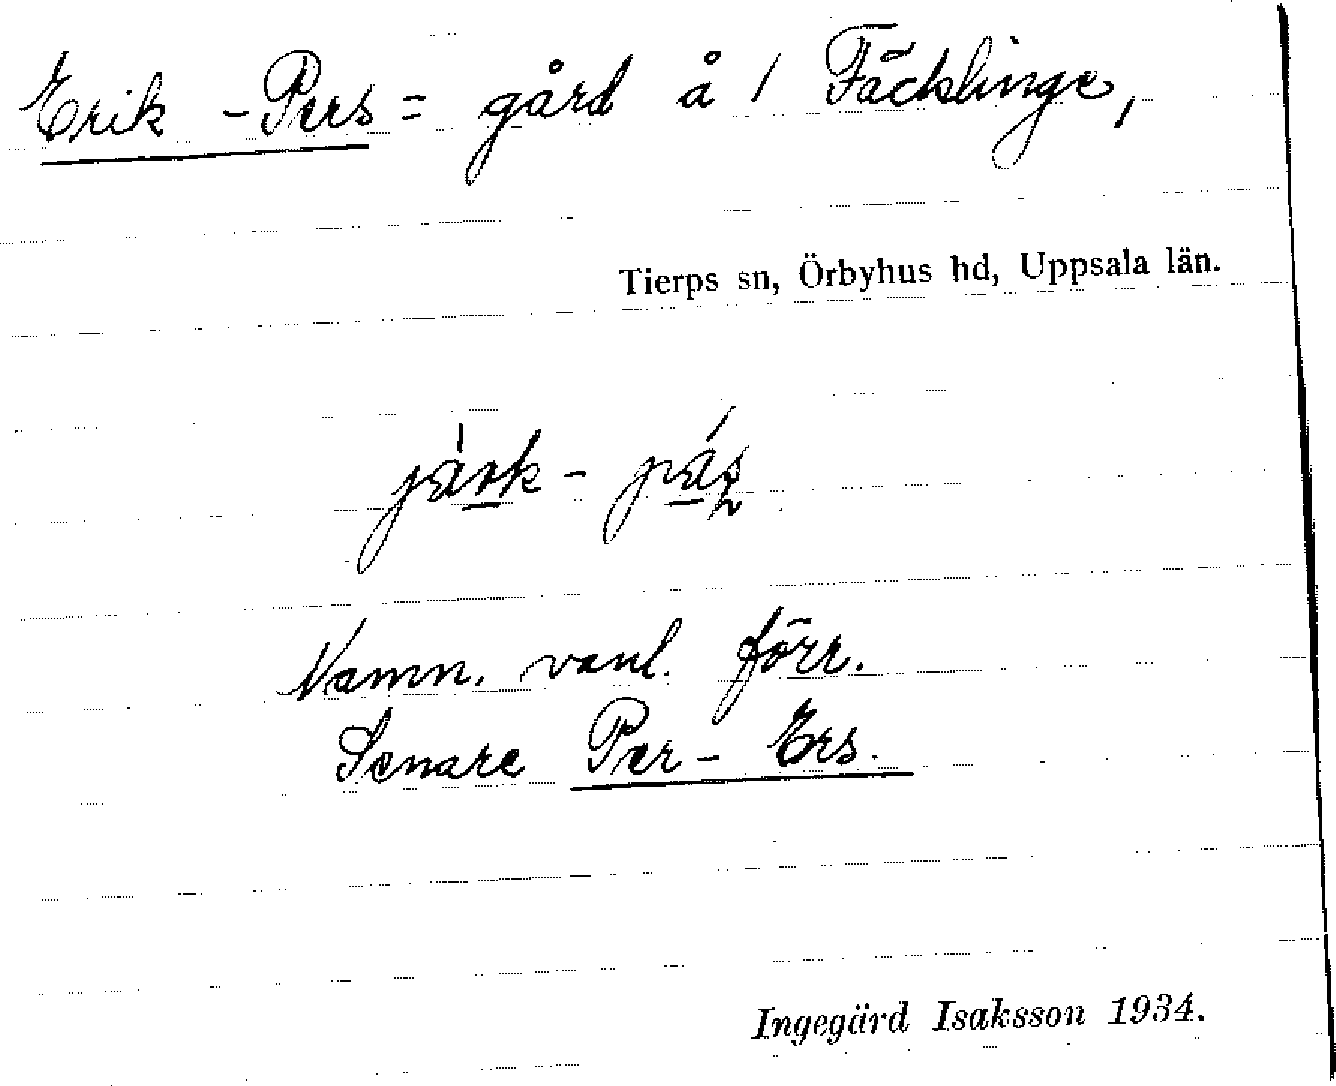 Erik - Pers = gård å 1 Fäcklinge,
Tierps sn, Örbyhus hd, Uppsala län.
Namn. vanl. förr.
Senare Per - Ers.
Ingegärd Isaksson 1934.